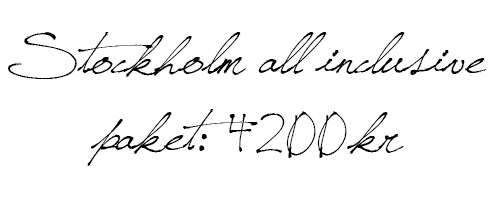 Stockholm all inclusive
paket: 4200kr